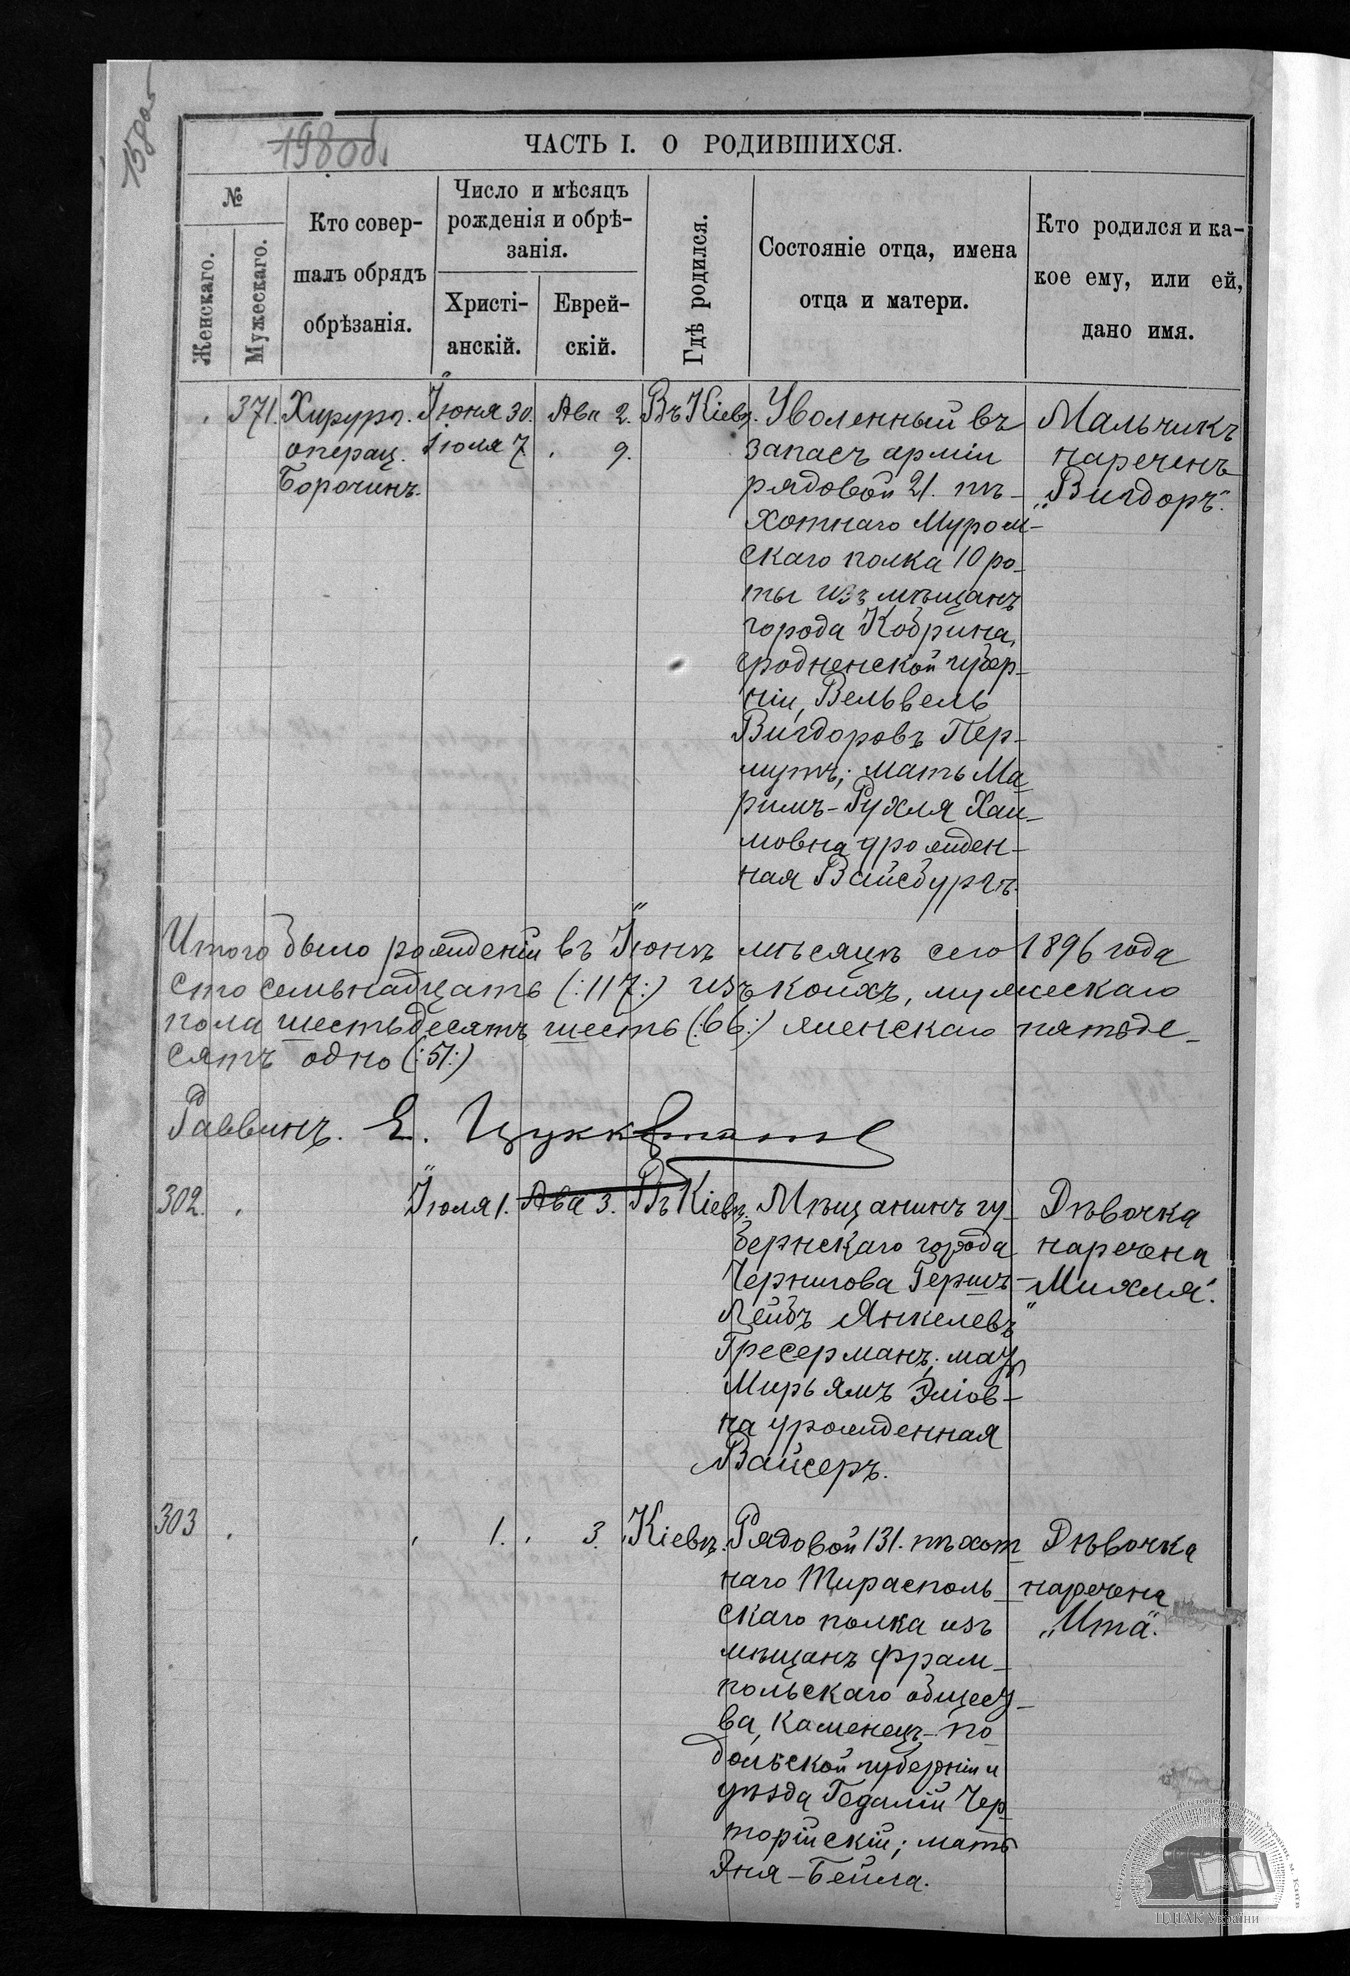 158об
198об.
ЧАСТЬ I. О РОДИВШИХСЯ.
№
Женскаго.
Мужескаго.
Кто совер-
шалъ обрядъ
обрѣзанія.
Число и мѣсяцъ
рожденія и обрѣ-
занія.
Христі-
анскій.
Еврей-
скій.
Гдѣ родился.
Состояніе отца, имена
отца и матери.
Кто родился и ка-
кое ему, или ей,
дано имя.
371.
Хирург.
операц.
Борочинъ.
Іюня 30.
Іюля 7
Ава 2.
9.
Въ Кіевѣ.
Уволенный въ
запасъ арміи
рядовой 21. пѣ-
хотнаго Муром-
скаго полка 10 ро-
ты изъ мѣщанъ
города Кобрина,
гродненской губер-
ніи, Вельвель
Вигдоровъ Пер-
мутъ; мать Ма-
римъ-Рухля Хаи-
мовна урожден-
ная Вайсбургъ.
Мальчикъ
нареченъ
„Вигдоръ".
Итого было рожденій въ Іюнѣ мѣсяцѣ сего 1896 года
сто семьнадцать (:117:) изъ коихъ, мужескаго
пола шестьдесятъ шесть (:66:) женскаго пятьде-
сятъ одно (:51:)
Раввинъ. Е. Цуккерманъ
302.
Іюля 1.
Ава 3.
Въ Кіевѣ.
Мѣщанинъ гу-
бернскаго города
Чернигова Гершъ-
Лейбъ Янкелевъ
Гресерманъ; мать
Мирьямъ Эліов-
на урожденная
Вайсеръ.
Дѣвочка
наречена
„Михля".
303
1.
3.
Кіевѣ.
Рядовой 131. пѣхот-
наго Тирасполь-
скаго полка изъ
мѣщанъ фрам-
польскаго общест-
ва, Каменецъ-по-
дольской губерніи и
уѣзда Гедалій Чер-
торійскій; мать
Эня-Бейла.
Дѣвочка
наречена
„Ита".
ЦДІАК України